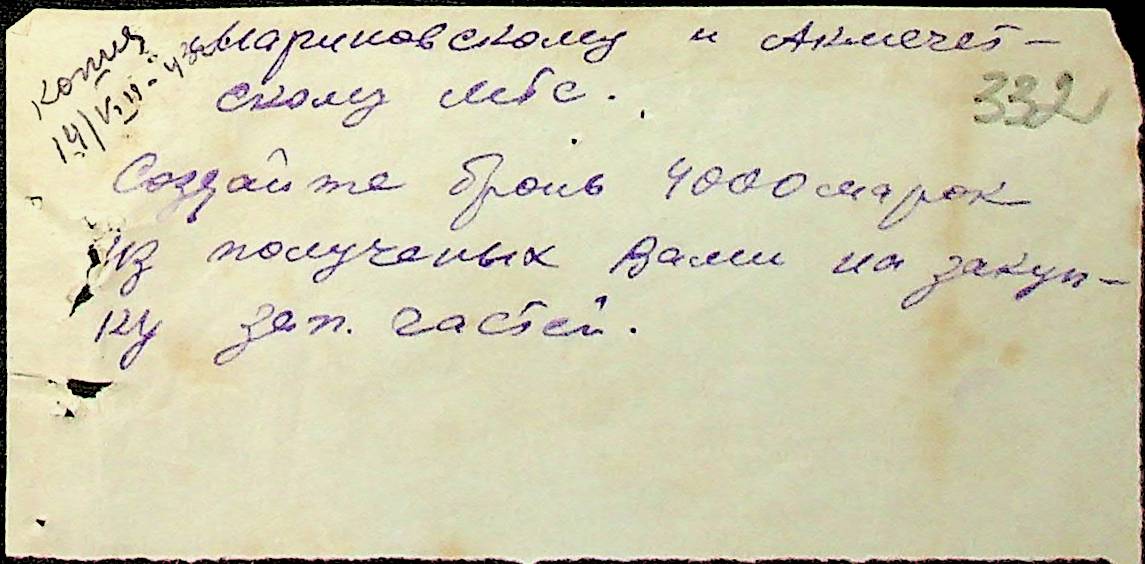 Копия
14/VIII-43г.
Мариновскому и Акмечет-
скому мтс.
332
Создайте бронь 4000 марок
из полученых Вами на закуп-
ку зап. частей.